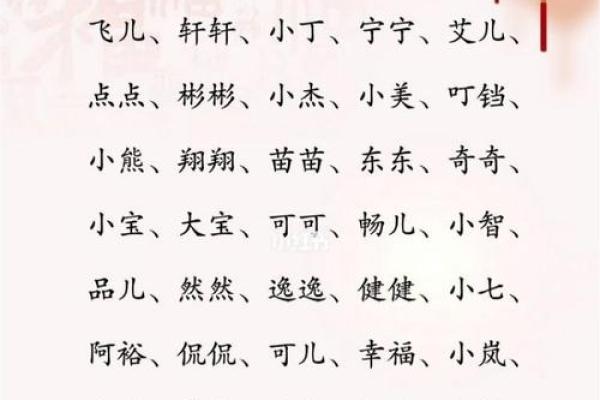 飞儿、轩轩、小丁、宁宁、艾儿、
点点、彬彬、小杰、小美、叮铛、
小熊、翔翔、苗苗、东东、奇奇、
小宝、大宝、可可、畅儿、小智、
小红书
品儿、然然、逸逸、健健、小七、
阿裕、侃侃、可儿、幸福、小岚、